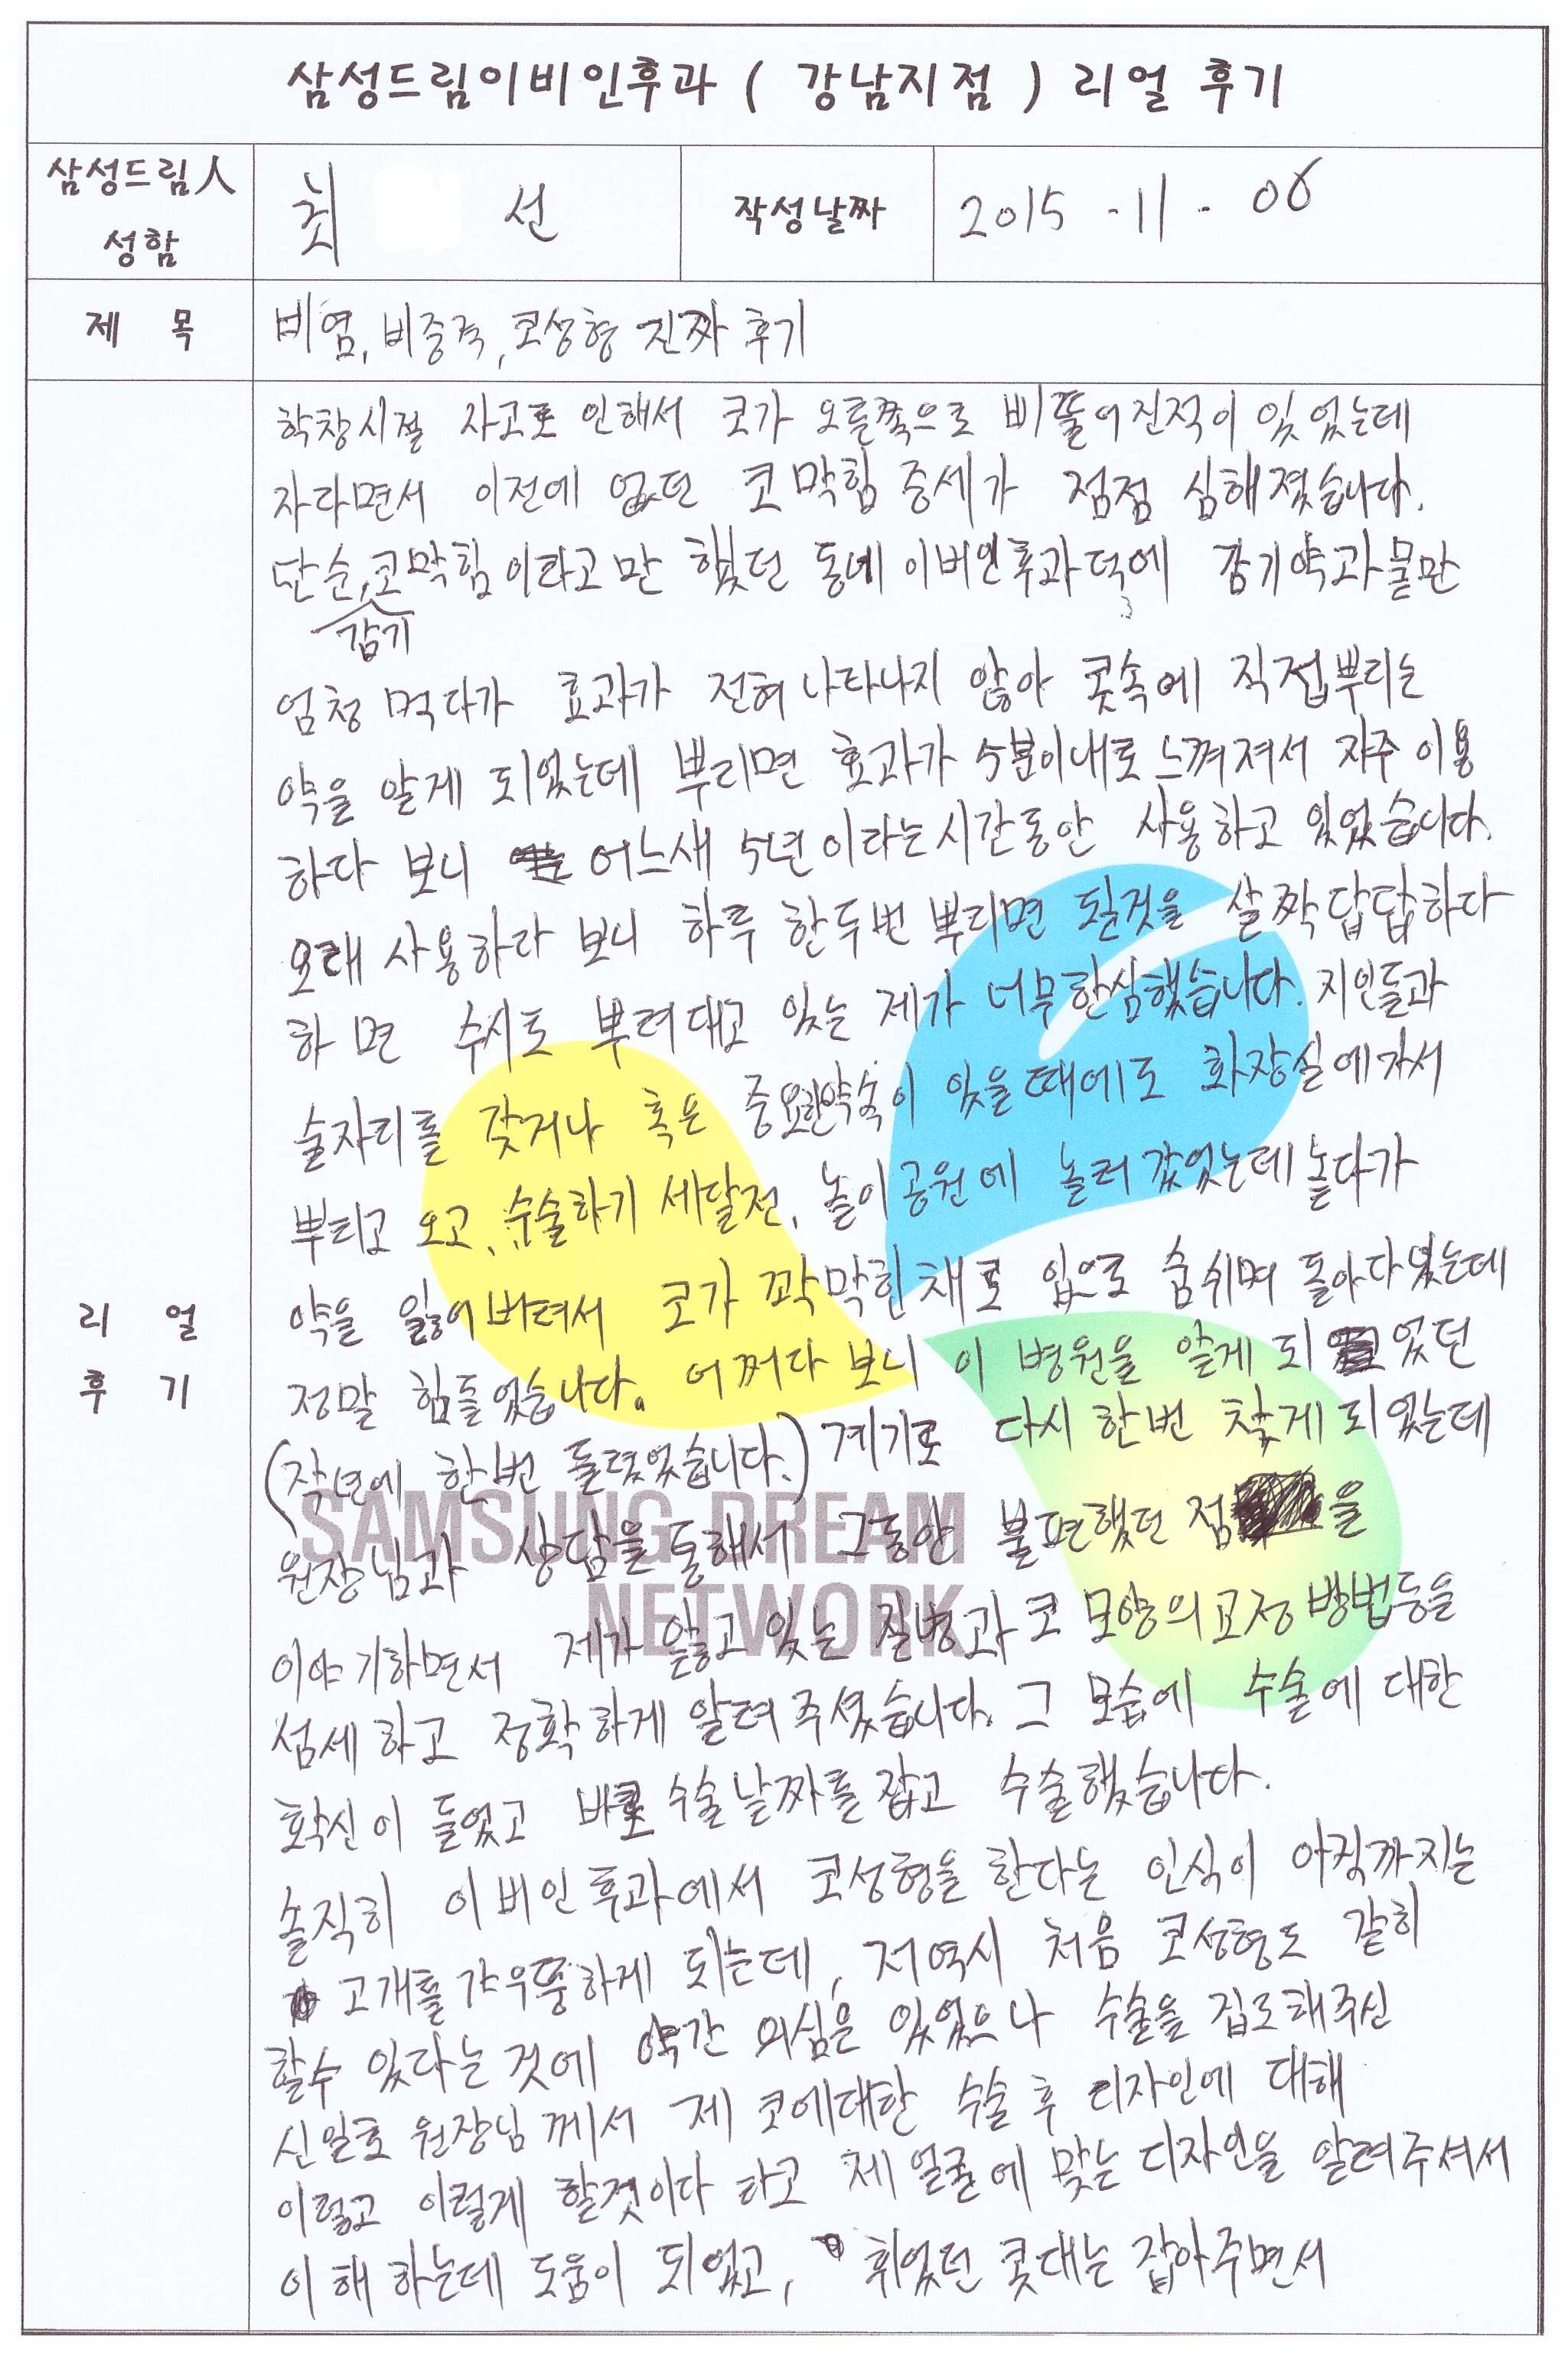 삼성드림이비인후과 ( 강남지점 ) 리얼 후기
삼성드림人
성함
최 선
작성날짜
2015 - 11 - 06
제 목
비염, 비중격, 코성형 진짜 후기
리 얼
후 기
학창시절 사고로 인해서 코가 오른쪽으로 비뚤어진적이 있었는데
자라면서 이전에 없던 코막힘 증세가 점점 심해졌습니다.
단순, 코막힘이라고만 했던 동네 이비인후과덕에 감기약과물만
감기
엄청 먹다가 효과가 전혀 나타나지 않아 콧속에 직접뿌리는
약을 알게 되었는데 뿌리면 효과가 5분이내로 느껴져서 자주 이용
하다 보니 어느새 5년이라는시간동안 사용하고 있었습니다.
오래 사용하다 보니 하루 한두번 뿌리면 될것을 살짝답답하다
하면 수시로 뿌려대고 있는 제가 너무한심했습니다. 지인들과
술자리를 갖거나 혹은 중요한약속이 있을때에도 화장실에가서
뿌리고 오고, 수술하기 세달전, 놀이공원에 놀러갔었는데놀다가
약을 잃어버려서 코가 꽉막힌채로 입으로 숨쉬며 돌아다녔는데
정말 힘들었습니다. 어쩌다 보니 이 병원을 알게되었던
(작년에 한번 들렸었습니다.) 계기로 다시 한번 찾게되었는데
원장님과 상담을 통해서 그동안 불편했던 점을
SAMSUNG DREAM
NETWORK
이야기하면서 제가 앓고 있는 질병과 코 모양의교정 방법등을
섬세하고 정확하게 알려주셨습니다. 그 모습에 수술에 대한
확신이 들었고 바로 수술날짜를잡고 수술했습니다.
솔직히 이비인후과에서 코성형을 한다는 인식이 아직까지는
고개를 갸우뚱하게 되는데, 저역시 처음 코성형도 같히
할수 있다는것에 약간 의심은 있었으나 수술을 집도해주신
신일호 원장님께서 제 코에대한 수술 후 디자인에 대해
이렇고 이렇게 할것이다 라고 제 얼굴에 맞는 디자인을 알려주셔서
이해하는데 도움이 되었고, 휘었던 콧대는 잡아주면서